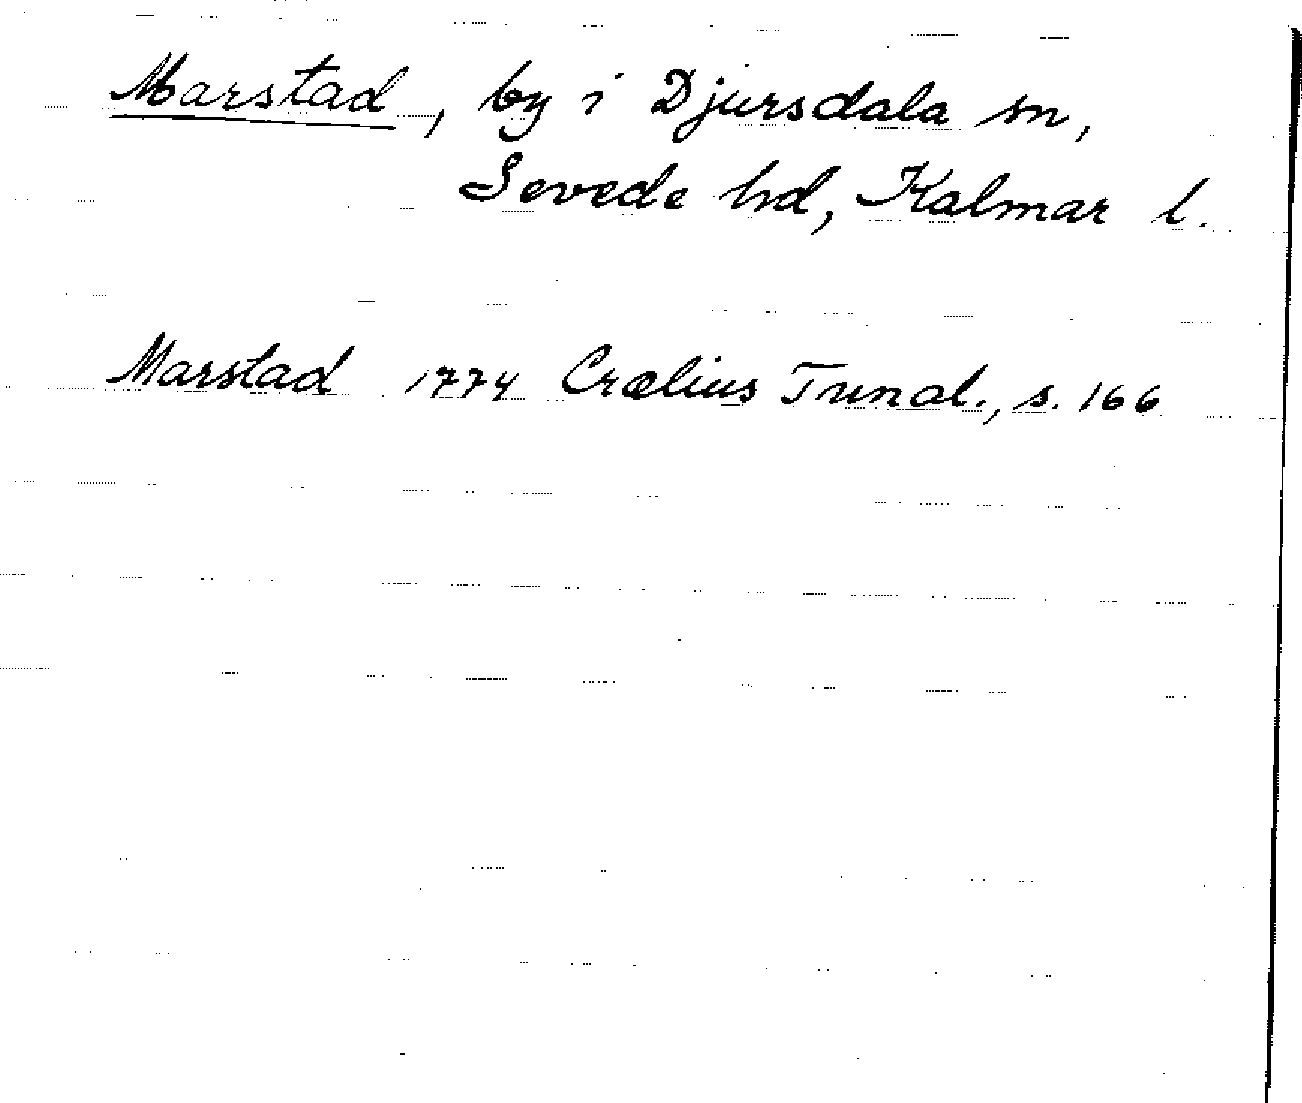 Marstad, by i Djursdala sn,
Sevede hd, Kalmar l.
Marstad 1774 Crælius Tunal., s. 166